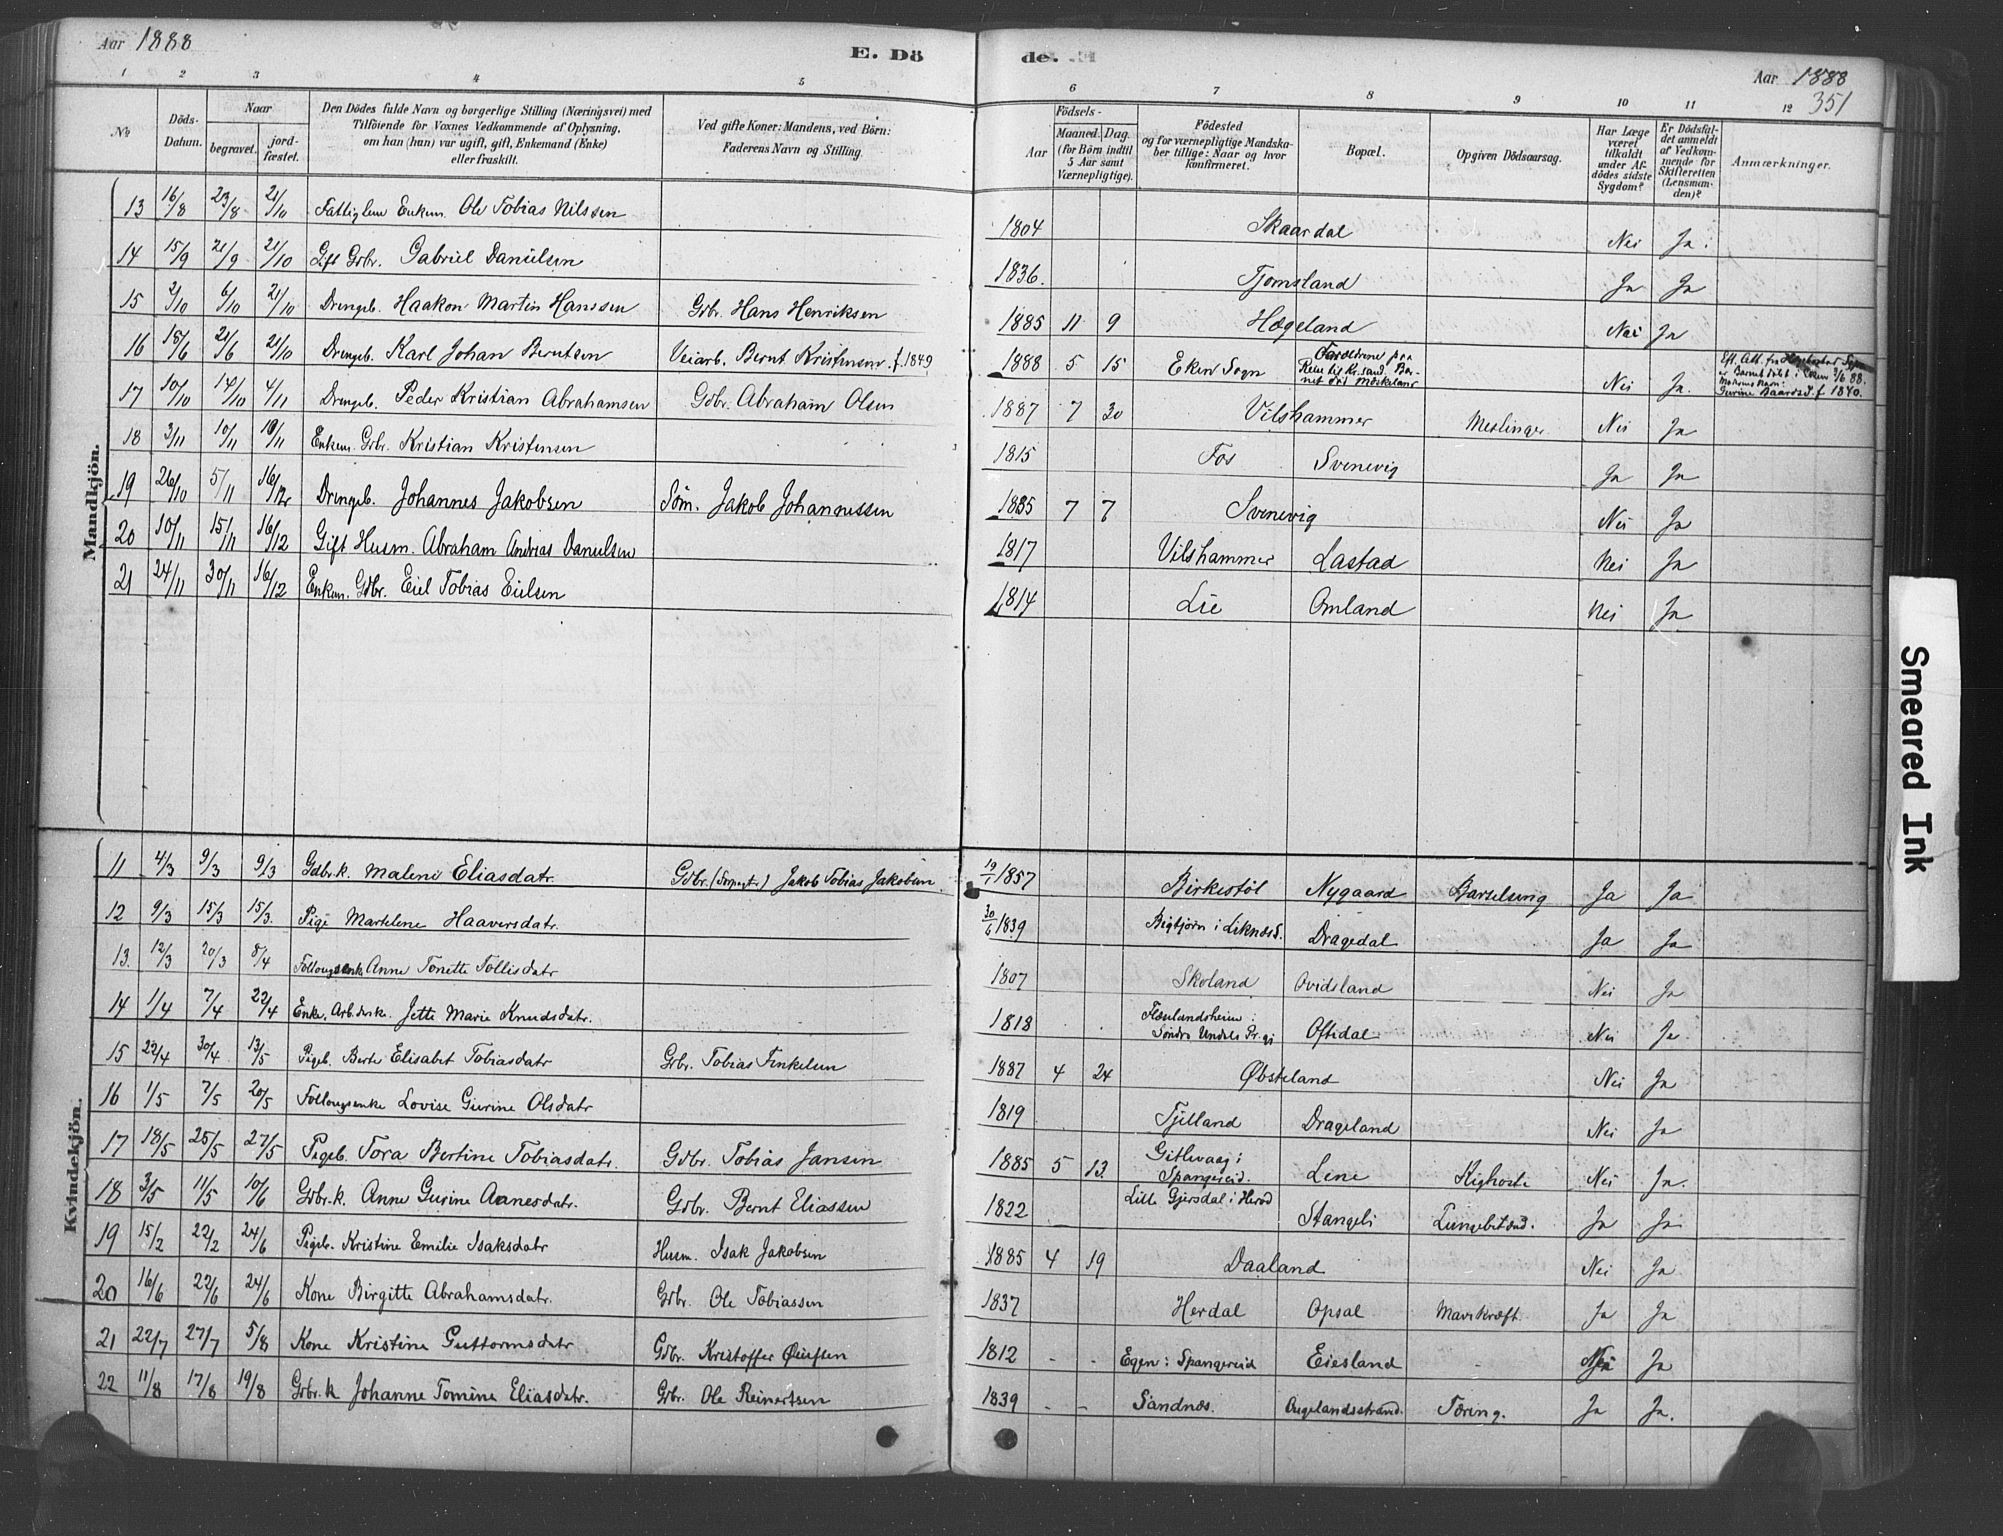 Aar 1888
E. Dö
de.
Aar 1888
351
1 2 3 4 5 6 7 8 9 10 11 12
No
Döds-Datum.
Naar
begravet.
jord-fæstet.
Den Dödes fulde Navn og borgerlige Stilling (Næringsvei) med
Tilföiende for Voxnes Vedkommende af Oplysning,
om han (hun) var ugift, gift, Enkemand (Enke)
eller fraskilt.
Ved gifte Koner: Mandens, ved Börn:
Faderens Navn og Stilling.
Födsels-
Aar
Maaned. Dag.
(for Börn indtil
5 Aar samt
Værnepligtige).
Födested
og for værnepligtige Mandska-
ber tillige: Naar og hvor
konfirmeret.
Bopæl.
Opgiven Dödsaarsag.
Har Læge
været
tilkaldt
under Af-
dödes sidste
Sygdom?
Er Dödsfal-
det anmeldt
af Vedkom-
mende for
Skifteretten
(Lensman-
den)?
Anmærkninger.
Mandkjön.
13 16/8 23/8 21/10 Fattiglem Enkem. Ole Tobias Nilssen 1804 Skaardal Nei Ja
14 15/9 21/9 21/10 Gift Gdbr. Gabriel Danielsen 1836. Tjomsland Ja Ja
15 2/10 6/10 21/10 Drengeb. Haakon Martin Hanssen Gdbr. Hans Henriksen 1885 11 9 Hægeland Nei Ja
16 18/6 21/6 21/10 Drengeb. Karl Johan Berntsen Veiarb. Bernt Kristensen f. 1849 1888 5 15 Eken Sogn Forældrene paa Reise til Kr.sand. Bar- net död Møskeland Nei Ja. Eft. Att. fra Hægebostad Sogn er Barnet døbt i Eken 3/6 88. Moderens Navn: Gurine Baardsd. f. 1840.
17 10/10 14/10 4/11 Drengeb. Peder Kristian Abrahamsen Gdbr. Abraham Olsen 1887 7 30 Vilshammer Meslinger Nei Ja
18 3/11 10/11 10/11 Enkem. Gdbr. Kristian Kristensen 1815 Fos Svenevig Ja Ja
19 26/10 5/11 16/12 Drengeb. Johannes Jakobsen Søm. Jakob Johannessen 1885 7 7 Svenevig Nei Ja
20 10/11 15/11 16/12 Gift Husm. Abraham Andrias Danielsen 1817 Vilshammer Lastad Nei Ja
21 24/11 30/11 16/12 Enkem. Gdbr. Eiel Tobias Eielsen 1814 Lie Omland Nei Ja
Kvindekjön.
11 4/3 9/3 9/3 Gdbr.k. Malene Eliasdatr. Gdbr. Jakob Tobias Jakobsen. 19/1 1857 Birkestøl Nygaard Barselseng Ja Ja
12 9/3 15/3 15/3. Pige Martelene Haaversdatr. 30/6 1839 Bigtjørn i Liknæs S. Dragedal Ja Ja
13. 12/3 20/3 8/4 Anne Tonette Tollisdatr 1807 Skoland Ovidsland Nei Ja
14 1/4 7/4 22/4 Enke. Jette Marie Knudsdatr. 1818 Søndre Undals Pr.gj Oftedal Nei Ja.
15 22/4 30/4 13/5 Pigeb. Berte Elisabet Tobiasdatr Gdbr. Tobias Finkelsen 1887 4 24 Øbsteland Nei Ja
16 1/5 7/5 20/5 Føllougsenke Lovise Gurine Olsdatr 1819 Tjelland Drageland Nei Ja
17 18/5 25/5 27/5 Pigeb. Tora Bertine Tobiasdatr. Gdbr. Tobias Jansen 1885 5 13. Gitlevaag i Spangereid. Lene Kighoste Nei Ja.
18 3/5 11/5 10/6 Gdbr.k. Anne Gurine Aanesdatr. Gdbr. Bernt Eliassen 1822 Lille Gjersdal i Herod Stangeli Lungebetænd. Ja Ja
19 15/2 22/2 24/6 Pigeb. Kristine Emilie Isaksdatr Husm. Isak Jakobsen 1885 4 19 Daaland Nei Ja
20 16/6 22/6 24/6 Kone Birgitte Abrahamsdatr. Gdbr. Ole Tobiassen 1837 Herdal Opsal Mavekræft Ja Ja
21 22/7 27/7 5/8 Kone Kristine Guttormsdatr Gdbr. Kristoffer 1812 - - Egen i Spangereid Eiesland - Ja
22 11/8 17/8 19/8 Gdbr.k Johanne Tomine Eliasdatr. Gdbr. Ole Reinertsen 1839 - - Sandnæs. Augelandsstrand. Tæring. Ja Ja.
Smeared Ink